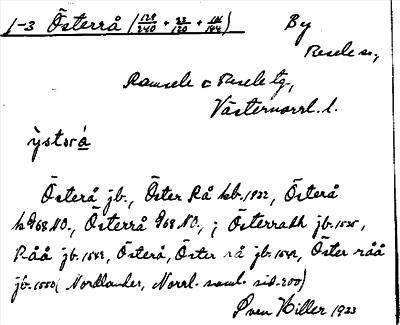 1-3 Österrå (129/240 + 22/120 + 111/144) By
Resele sn,
Ramsele o Resele tg,
Västernorrl. l.
ỳstərå
Österå jb., Öster Rå kb. 1922, Österå
1768 NO., Österrå 1768 NO., ; Österradh jb. 1535,
Råå jb. 1542, Österå, Öster rå jb. 1542, Öster råå
jb. 1550 (Nordlander, Norrl. saml. sid. 200)
Sven Hiller 1933